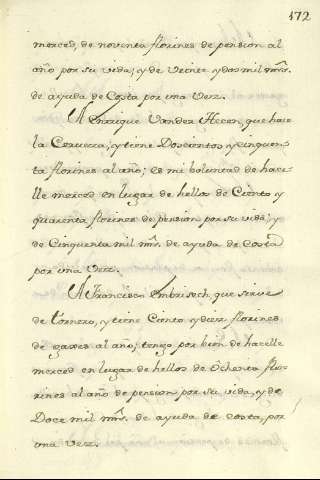 172
merced, de noventa florines de pension al
año por su vida; y de Veinte y dos mil mrs.
de ayuda de Costa por una Vez.
A Enrique Vander Hecen, que hace
la Cerveza; y tiene Doscientos y cinquen
ta florines al año; es mi boluntad de hacer
lle merced en lugar de hellos de Ciento y
quarenta florines de pension por su vida; y
de Cinquenta mil mrs. de ayuda de Costa
por una Vez.
A Francisco Embrisech, que sirve
de tornero, y tiene Ciento y diez florines
de gaxes al año; tengo por bien de hacelle
merced en lugar de hellos de Ochenta flo-
rines al año de pension por su vida, y de
Doce mil mrs. de ayuda de costa, por
una Vez.